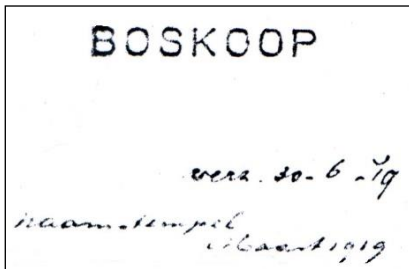 BOSKOOP
verz. 30-6-'19
naamstempel
Maart 1919